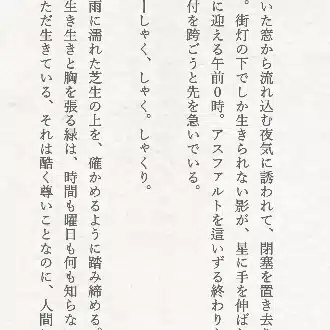 いた窓から流れ込む夜気に誘われて、閉塞を置き去
。街灯の下でしか生きられない影が、星に手を伸ば
に迎える午前０時。アスファルトを這いずる終わり
付を跨ごうと先を急いでいる。
ーしゃく、しゃく。しゃくり。
雨に濡れた芝生の上を、確かめるように踏み締める。
生き生きと胸を張る緑は、時間も曜日も何も知らな
ただ生きている、それは酷く尊いことなのに、人間